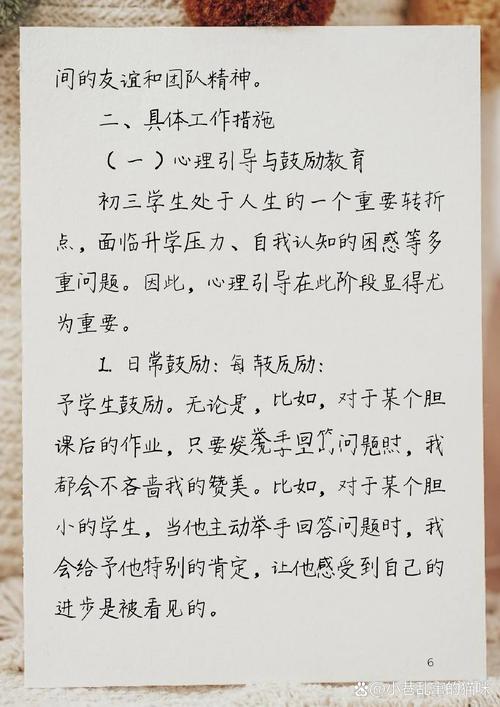 间的友谊和团队精神。
二、具体工作措施
（一）心理引导与鼓励教育
初三学生处于人生的一个重要转折
点，面临升学压力、自我认知的困惑等多
重问题。因此，心理引导在此阶段显得尤
为重要。
1. 日常鼓励：每 励：
予学生鼓励。无论是，比如，对于某个胆
课后的作业，只要发 举手回 问题时，我
都会不吝啬我的赞美。比如，对于某个胆
小的学生，当他主动举手回答问题时，我
会给予他特别的肯定，让他感受到自己的
进步是被看见的。
6
小巷乱窜的猫咪